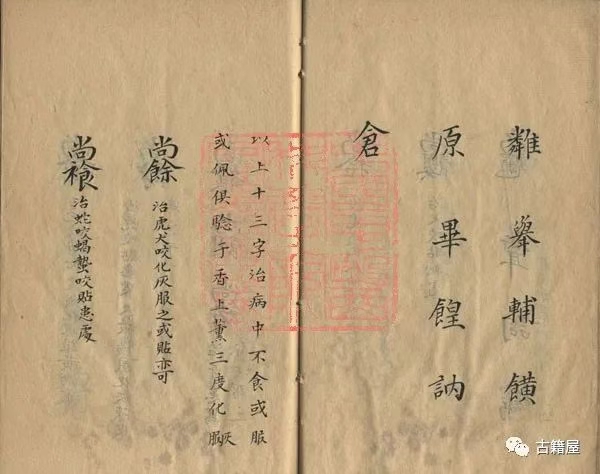 雜舉輔饙
原畢餭訥
倉
以上十三字治病中不食或服
或佩俱騐于香上薰三度化灰服
尚餘 治虎犬咬化灰服之或貼亦可
治蛇咬蝎蟄咬貼患處
古籍屋